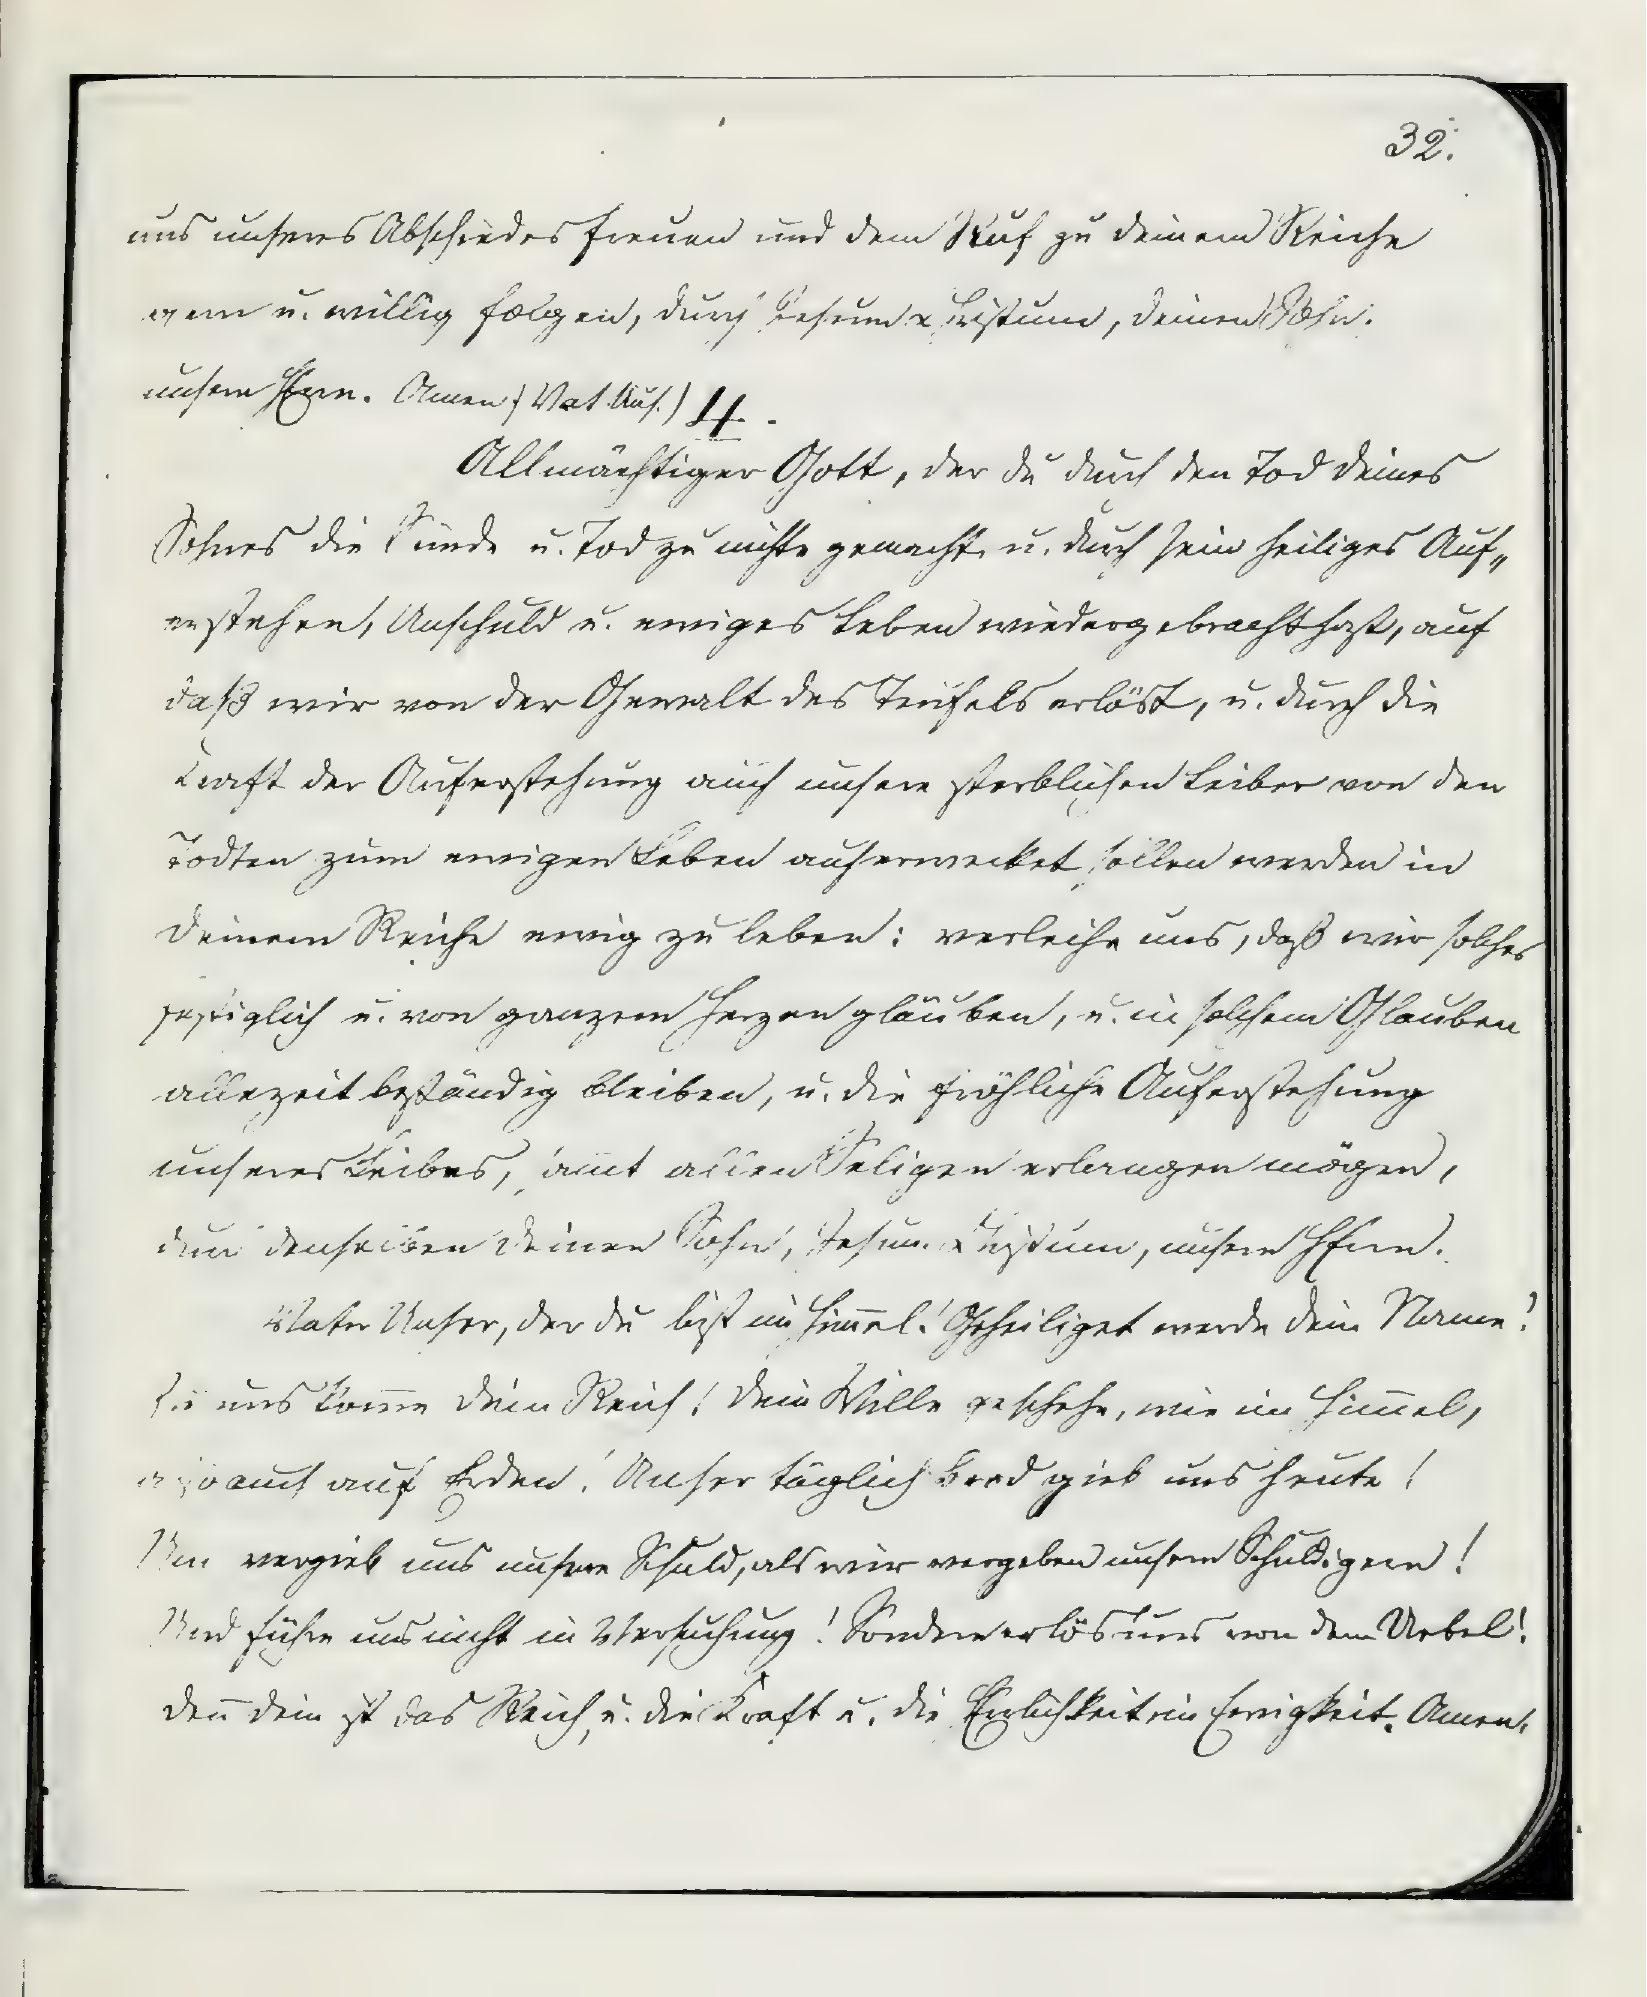 32.
uns unseres Abschiedes freuen und dem Ruf zu deinem Reiche
gern u. willig folgen, durch Jesum Christum, deinen Sohn.
unsern Herrn. Amen (Vat. Uns.) 4.
Allmächtiger Gott, der du durch den Tod deines
Sohnes die Sünde u. Tod zu nichte gemacht u. durch sein heiliges Auf„
erstehen, Unschuld u. ewiges Leben wiedergebracht hast, auf
daß wir von der Gewalt des Teufels erlöst, u. durch die
Kraft der Auferstehung auch unsere sterblichen Leiber von den
Todten zum ewigen Leben auferwecket sollen werden in
deinem Reiche ewig zu leben: verleihe uns, daß wir solches
festiglich u. von ganzem Herzen gläuben, u. in solchem Glauben
allezeit beständig bleiben, u. die fröhliche Auferstehung
unseres Leibes, samt allen Seligen erlangen mögen,
durch denselben deinen Sohn, Jesum Christum, unsern HErrn.
Vater Unser, der du bist im Him̅el! Geheiliget werde dein Name!
Zu uns kom̅e dein Reich! Dein Wille geschehe, wie im Him̅el,
also auch auf Erden! Unser täglich Brod gieb uns heute!
Und vergieb uns unsere Schuld, als wir vergeben unsern Schuldigern!
Und führe uns nicht in Versuchung! Sondern erlös uns von dem Uebel!
Den̅ dein ist das Reich, u. die Kraft u. die Herrlichkeit in Ewigkeit. Amen.